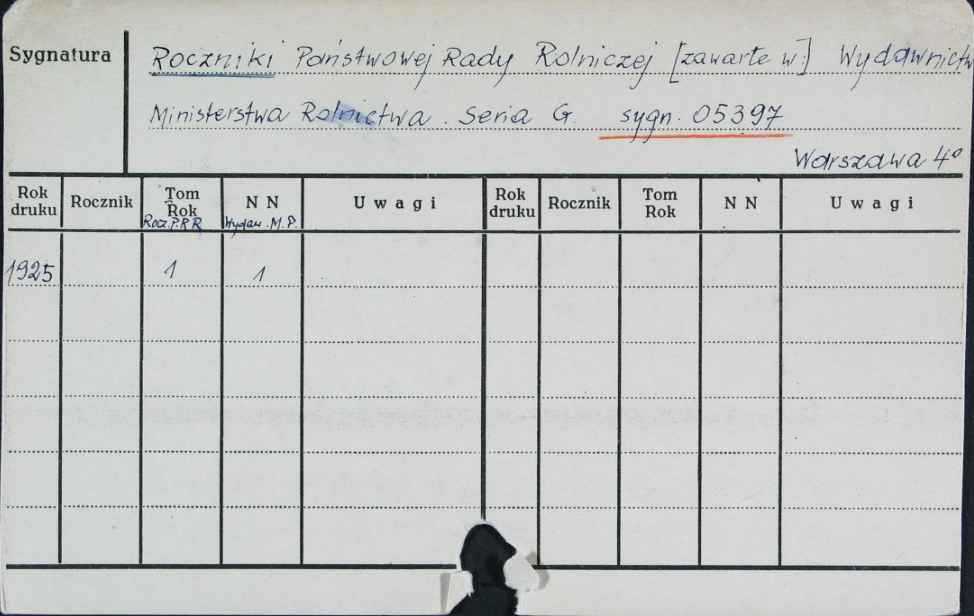 Sygnatura
Roczniki Państwowej Rady Rolniczej [zawarte w:] Wydawnictw
Ministerstwa Rolnictwa. Seria G. sygn. 05397
Warszawa 4°
Rok druku Rocznik Tom Rok N N Uwagi Rok druku Rocznik Tom Rok N N Uwagi
Rocz. P.R R Wydaw. M.P.
1925 1 1